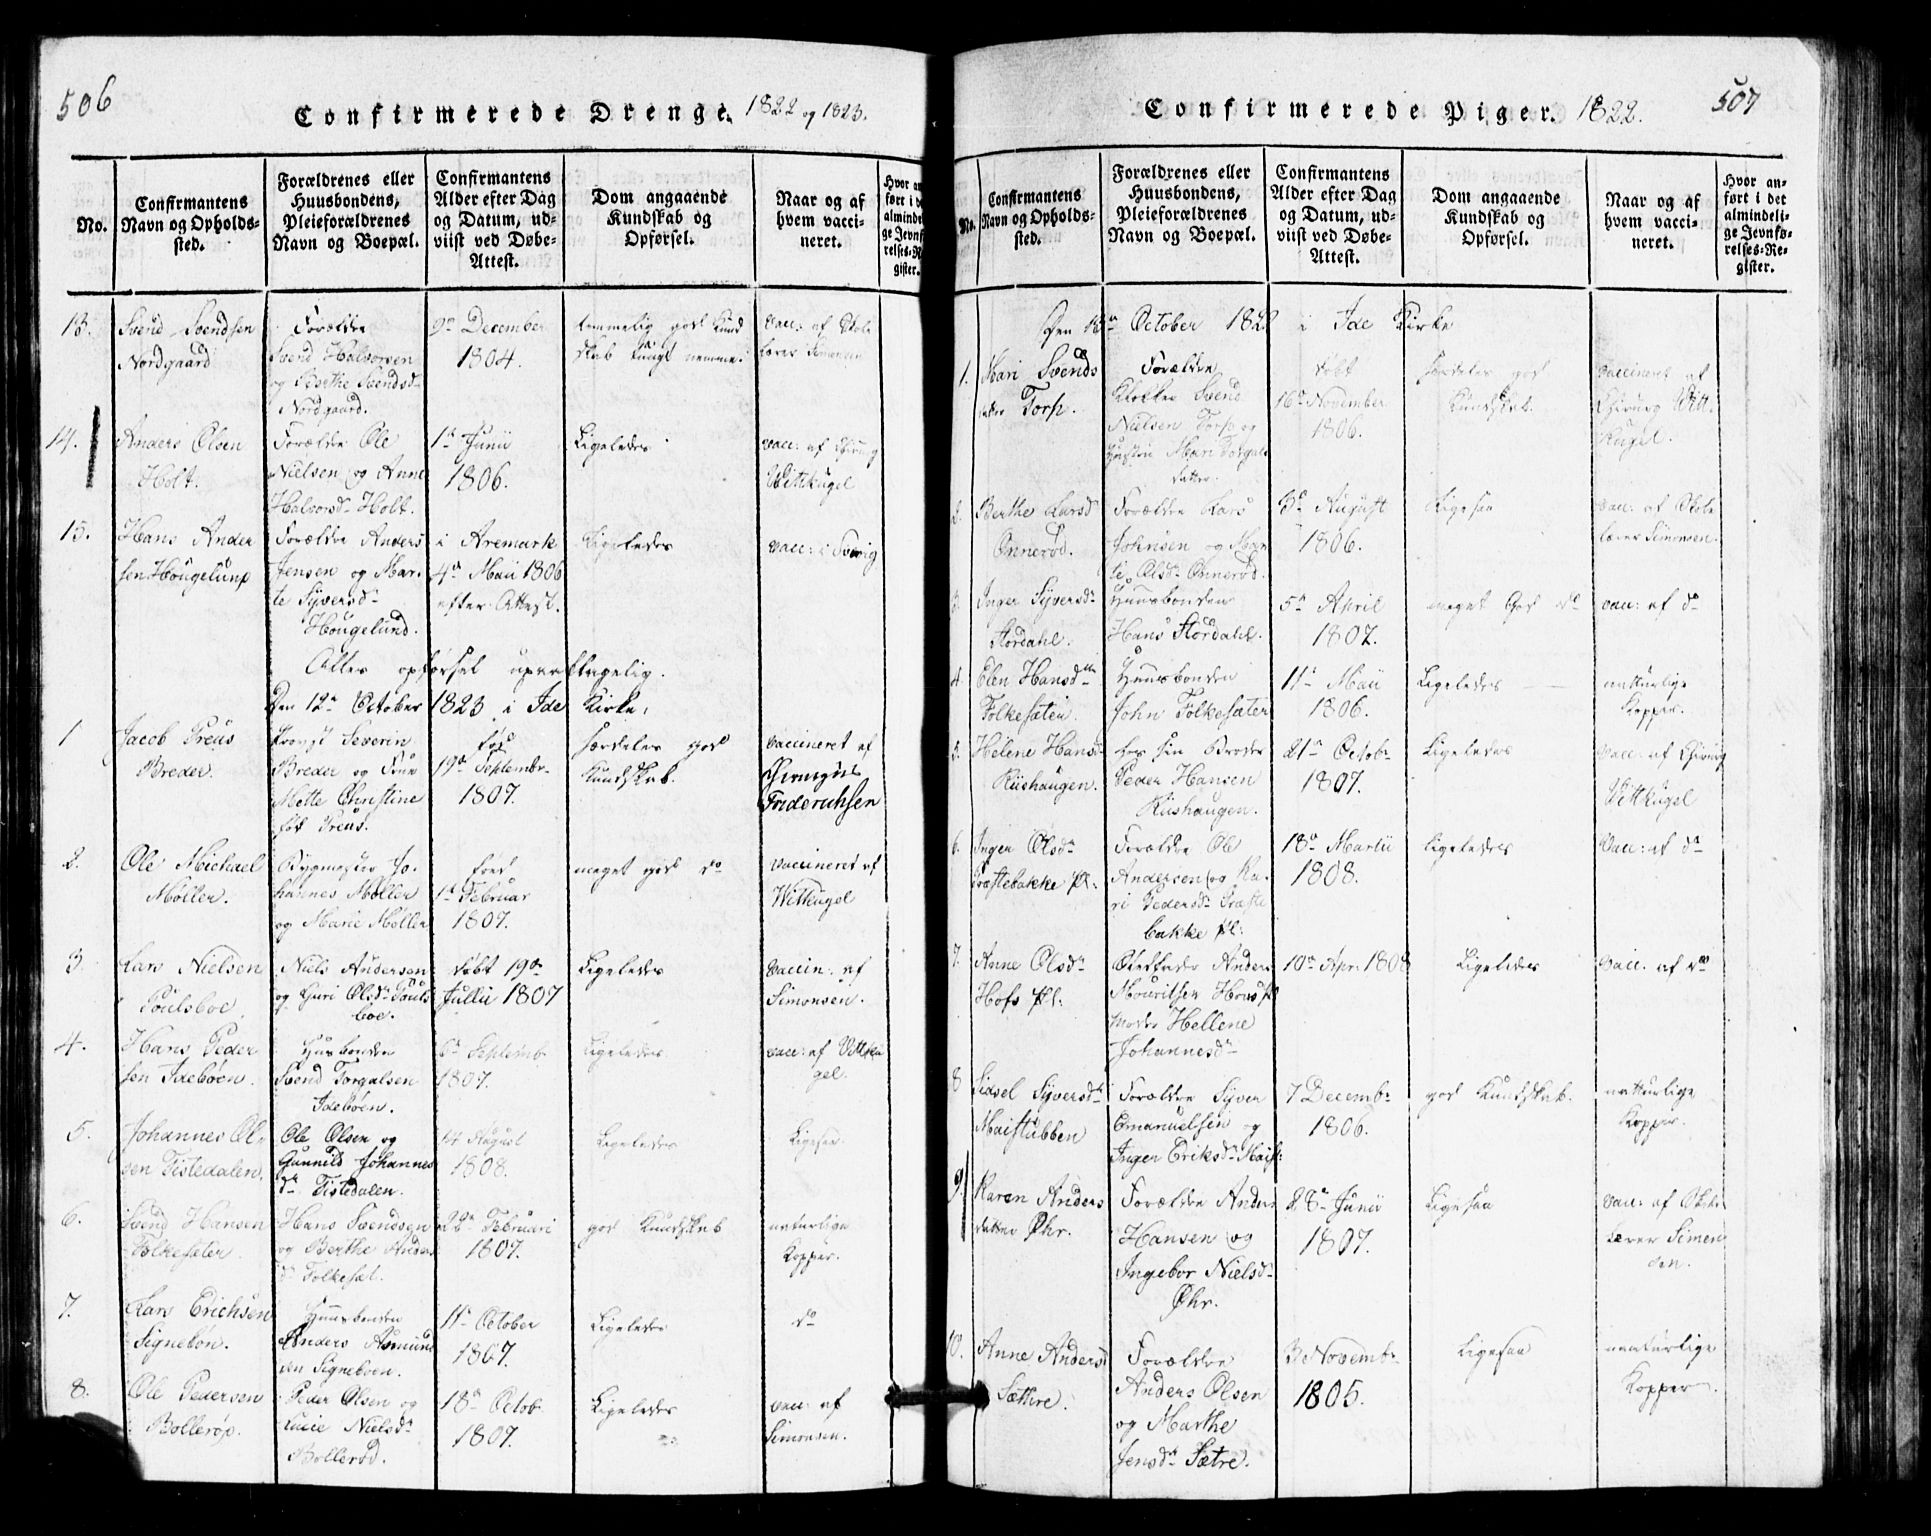 506
Confirmerede Drenge. 1822 og 1823.
No.
Confirmantens
Navn og Opholds-
sted.
Forældrenes eller
Huusbondens,
Pleieforældrenes
Navn og Boepæl.
Confirmantens
Alder efter Dag
og Datum, ud-
viist ved Døbe-
Attest.
Dom angaaende
Kundskab og
Opførsel.
Naar og af
hvem vacci-
neret.
13.
Svend Svendsen
Nordgaard
Forældre
Svend Halvorsen
og Berthe Svendsd.
Nordgaard.
9de December
1804.
temmelig god Kund
skab tungt nemme.
vacc: af Skole
lærer Simonsen
14.
Anders Olsen
Holt.
Forældre Ole
Nielsen og Anne
Halvorsd. Holt.
1te Junii
1806.
Ligeledes
vacc: af Chirurg
Wittkugel
15.
Hans Ander
sen Hougelund
Forældre Anders
Jensen og Mar-
te Syversdr
Hougelund.
i Aremark
4de Maii 1806
efter Attest.
Ligeledes
vacc: i Sverig
Alles opførsel upaaklagelig.
Den 12te October 1823 i Ide Kirke.
1
Jacob Preus
Breder.
Provst Severin
Breder og Frue
Mette Christine
fød Preus.
fød
19de Septembr.
1807.
særdeles god
Kundskab.
vaccineret af
Chirurgus
Friderichsen
2.
Ole Michael
Møller.
Bygmester Jo-
hannes Møller
og Marie Møller
fød
1te Februar
1807.
meget god do
vaccineret af
Wittkugel
3.
Lars Nielsen
Poulsboe.
Niels Andersen
og Guri Olsdr Pouls
boe.
døbt 19de
Julii 1807
Ligeledes
vaccin: af
Simonsen.
4.
Hans Peder
sen Ideboen.
Husbonden
Svend Torgalsen
Ideboen.
6te Septemb.
1807.
Ligeledes.
vacc: af Vittku
gel.
5.
Johannes Ol-
sen Tistedalen.
Ole Olsen og
Gunnild Johannes
dr Tistedalen.
14 August
1808.
Ligeledes
Ligesaa.
6.
Svend Hansen
Folkesæter.
Hans Svendsen
og Berthe Anders
dr Folkesæt.
22de Februari
1807.
god Kundskab
naturlige
Kopper.
7.
Lars Erichsen
Signebon.
Huusbonden
Anders Asmund
sen Signeboen.
11te October
1807.
Ligeledes
do
8.
Ole Pedersen
Bollerød.
Peder Olsen og
Lucie Nielsdr
Bollerød.
18de Octob.
1807.
Ligeledes
vacc: af
Simonsen.
507
Confirmerede Piger. 1822.
No.
Confirmantens
Navn og Opholds-
sted.
Forældrenes eller
Huusbondens,
Pleieforældrenes
Navn og Boepæl.
Confirmantens
Alder efter Dag
og Datum, ud-
viist ved Døbe-
Attest.
Dom angaaende
Kundskab og
Opførsel.
Naar og af
hvem vacci-
neret.
Hvor an-
ført i det
almindeli-
ge Jevnfø-
relses-Re-
gister.
October 1822 i Ide Kirke
1.
Mari Svends
datter Torp.
Forældre
Klokker Svend
Nielsen Torp og
Hustru Mari Torgals
datter.
døbt
16de November
1806.
særdeles god
Kundskab.
vaccineret af
Chirurg Witt-
kugel.
2.
Berthe Larsd
Onnerød.
Forældre Lars
Johnsen og Mar
te Olsdr Onnerød.
3de August
1806.
Ligesaa
vacc: af Skole
lærer Simonsen.
3.
Inger Syversdr
Stordahl.
Huusbonden
Hans Stordahl.
5te April
1807.
meget God do
vacc: af do
4.
Elen Hansdr
Folkesæten.
Huusbonden
John Folkesæter
11te Maii
1806.
Ligeledes
naturlige
Kopper.
5.
Helene Hansd.
Riishaugen.
hos sin Broder
Peder Hansen
Riishaugen.
21de Octobr.
1807.
Ligeledes
vacc: af Chirurg
Vittkugel
6.
Inger Olsdr
Præstebakke Pl:
Forældre Ole
Andersen og Ka-
ri Pedersdr Præste
bakke Pl:
18de Martii
1808.
ligeledes
vacc: af do
7.
Anne Olsdr
Hofs Pl:
Stedfader Anders
Mouritsen Hovs Pl
Moder Hellene
Johannesdr
10de Apr. 1808
Ligeledes
vacc. af do
8
Sidsel Syversdr
Maistubben
Forældre Syver
Emanuelsen og
Inger Eriksdr Maist:
7 Decembr.
1806.
god Kundskab.
naturlige
Kopper.
9.
Karen Anders
datter Øhr.
Forældre Anders
Hansen og
Ingebor Nielsdr
Øhr.
28de Junii
1807.
Ligesaa
vacc: af Skole
lærer Simon
sen.
10.
Anne Andersd
Sæthre.
Forældre
Anders Olsen
og Marthe
Jensdr Sætre.
3 Novembr.
1805.
Ligesaa
naturlige
Kopper.